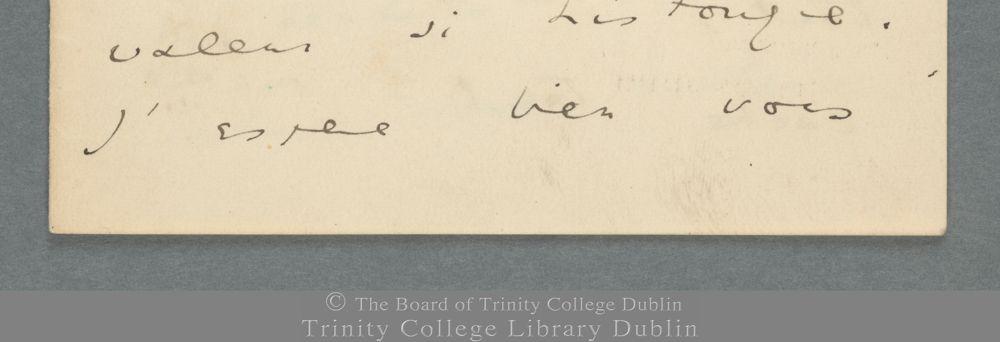 valeur si historique.
J'espere bien vous
© The Board of Trinity College Dublin
Trinity College Library Dublin